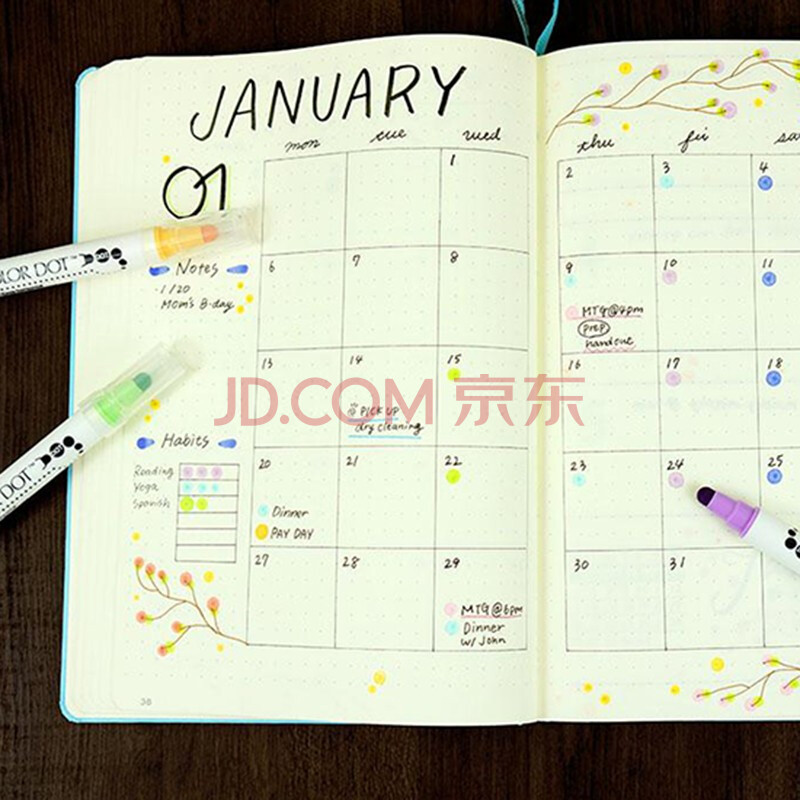 JANUARY
mon tue wed thu fri sa
01
1 2 3 4
LOR DOT™ DOT
Notes
·1/20
MOM'S B-day
6 7 8 9 10 11
MTG@4pm
prep
handout
13 14 15 16 17 18
PICK UP
dry cleaning
JD.COM 京东
DOT™ DOT
Habits
Reading
Yoga
Spanish
20 21 22 23 24 25
Dinner
PAY DAY
27 28 29 30 31
MTG@6pm
Dinner
w/ John
36